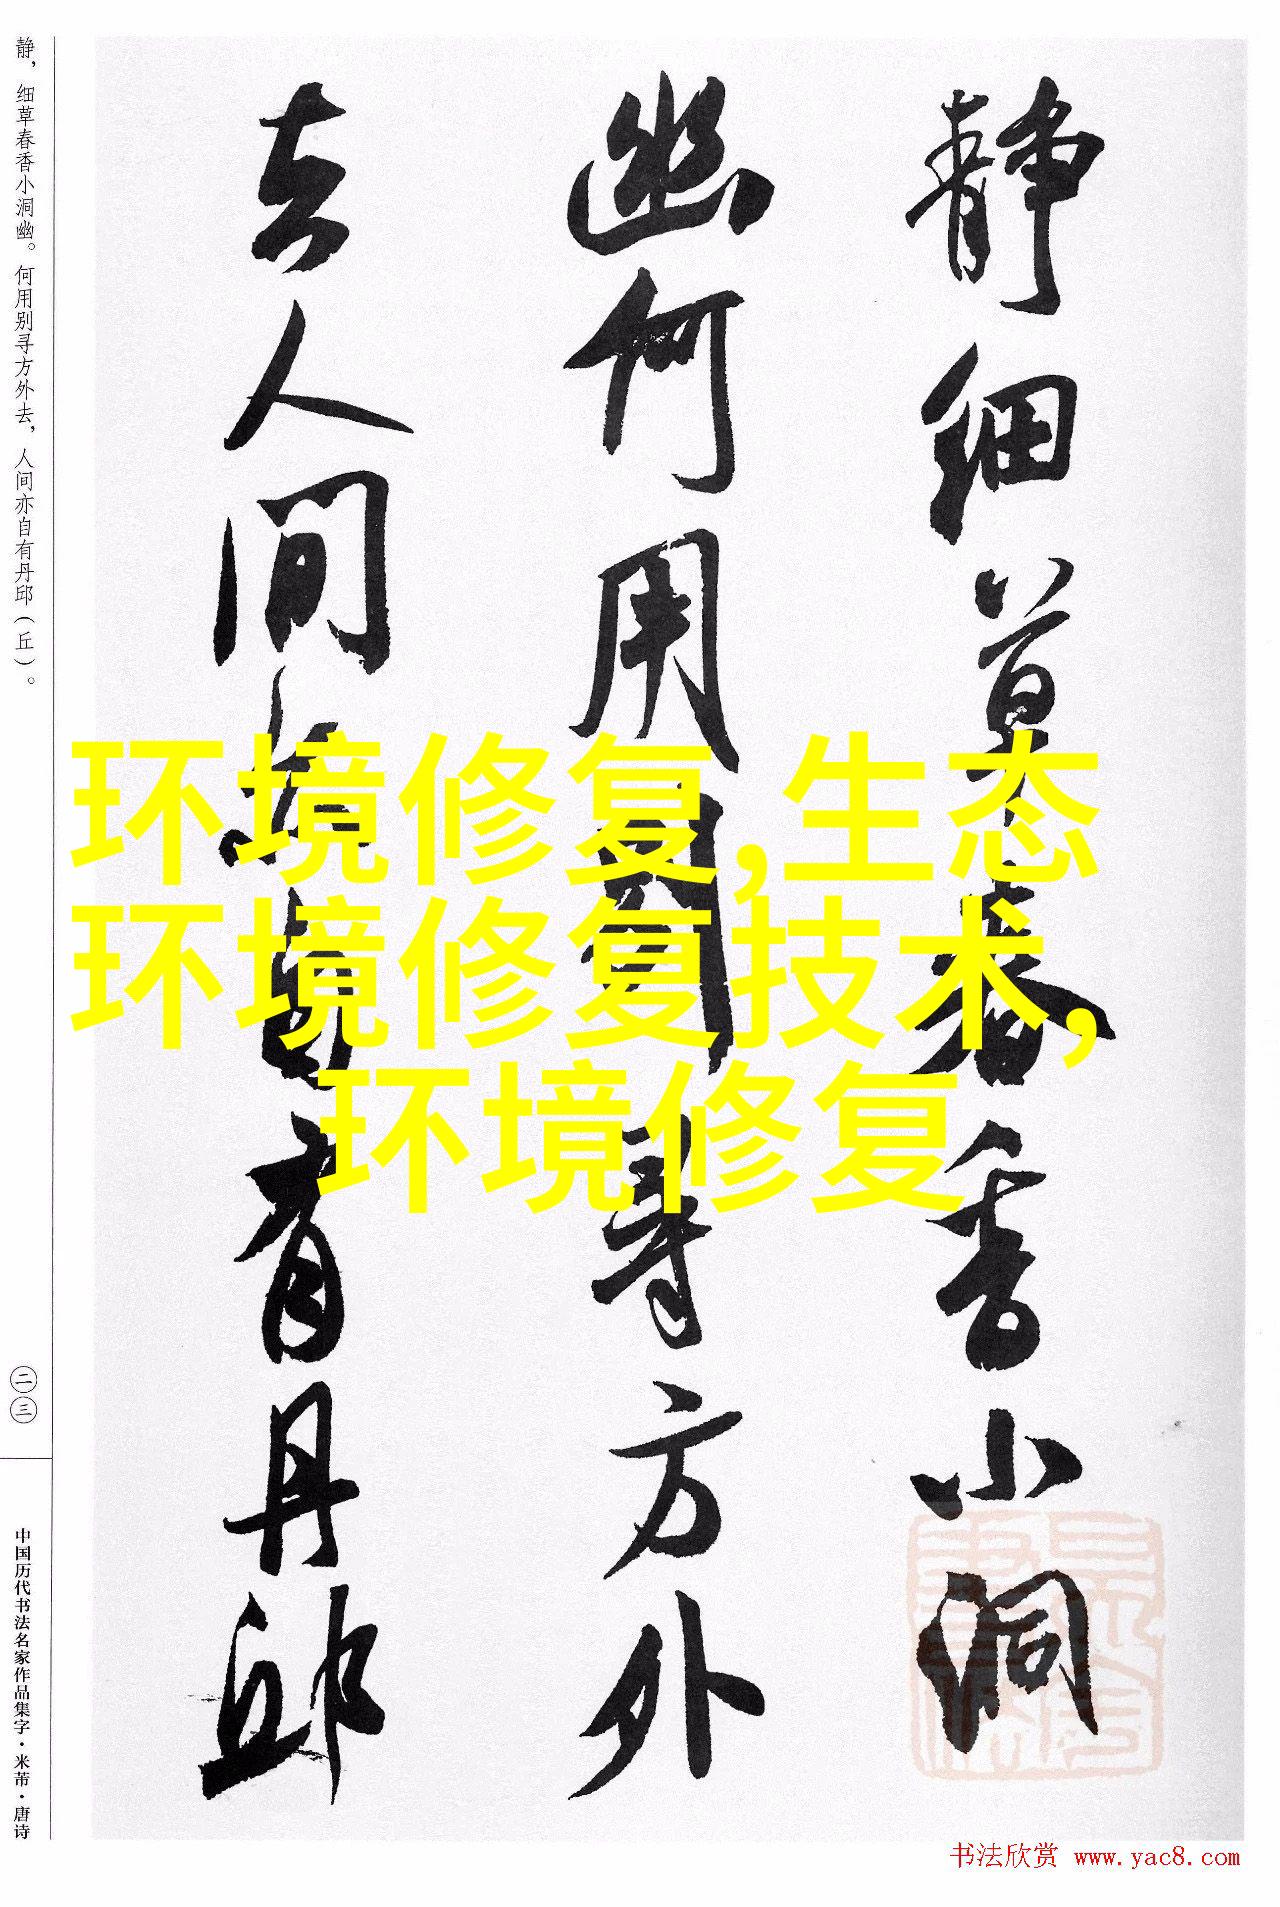 静细草春香小洞
幽何用别寻方外
去人間亦自有丹邱
静，细草春香小洞幽。何用别寻方外去，人间亦自有丹邱（丘）。
二三
中国历代书法名家作品集字·米芾·唐诗
环境修复,生态
环境修复技术,
环境修复
书法欣赏 www.yac8.com